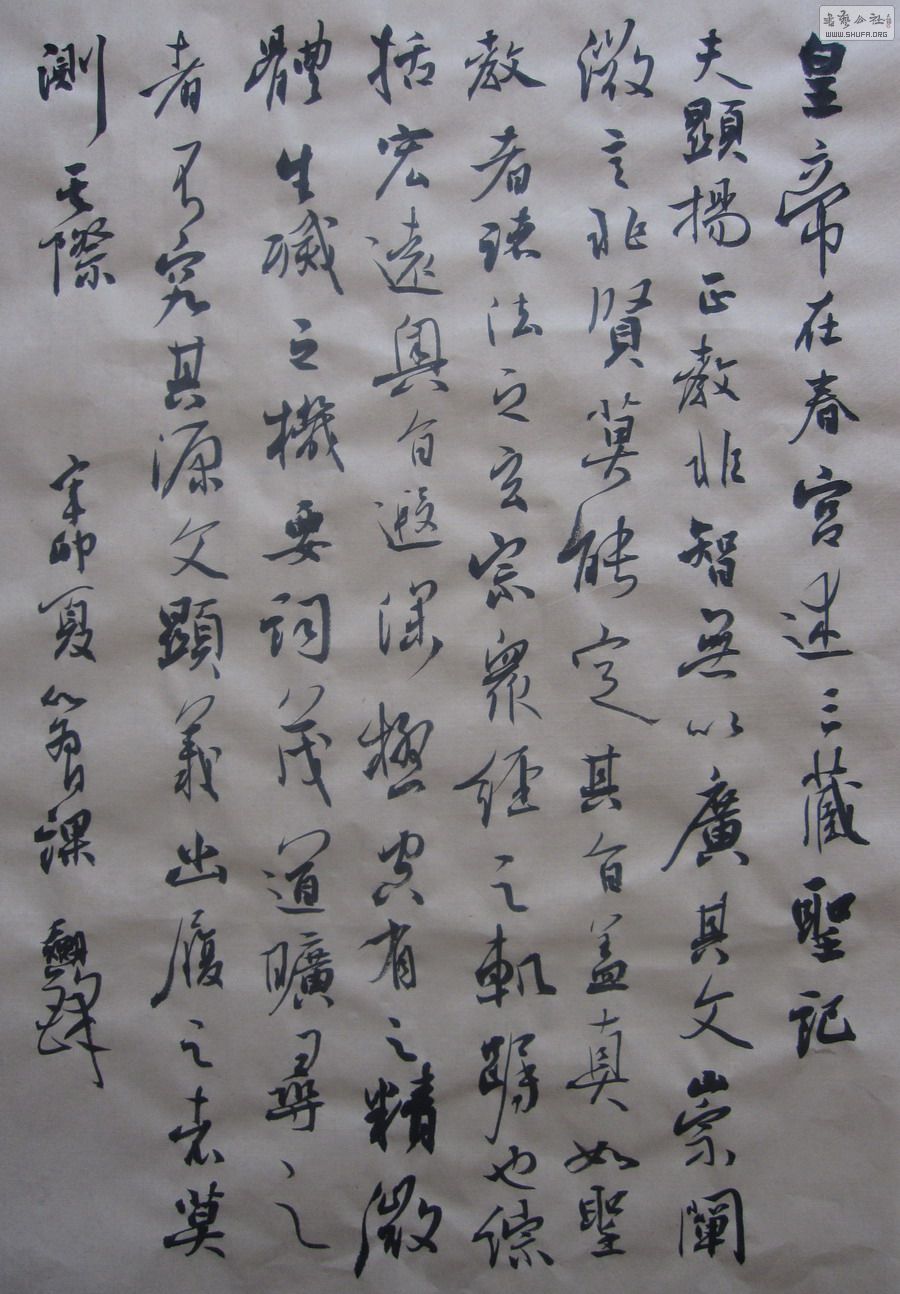 皇帝在春宮述三藏聖記
夫顯揚正教非智無以廣其文崇闡
微言非賢莫能定其旨盖真如聖
教者諸法之玄宗衆經之軌躅也綜
括宏遠奧旨遐深極空有之精微
體生滅之機要詞茂道曠尋之
者不究其源文顯義出履之者莫
測其際
辛卯夏以為日課
書藝公社
WWW.SHUFA.ORG